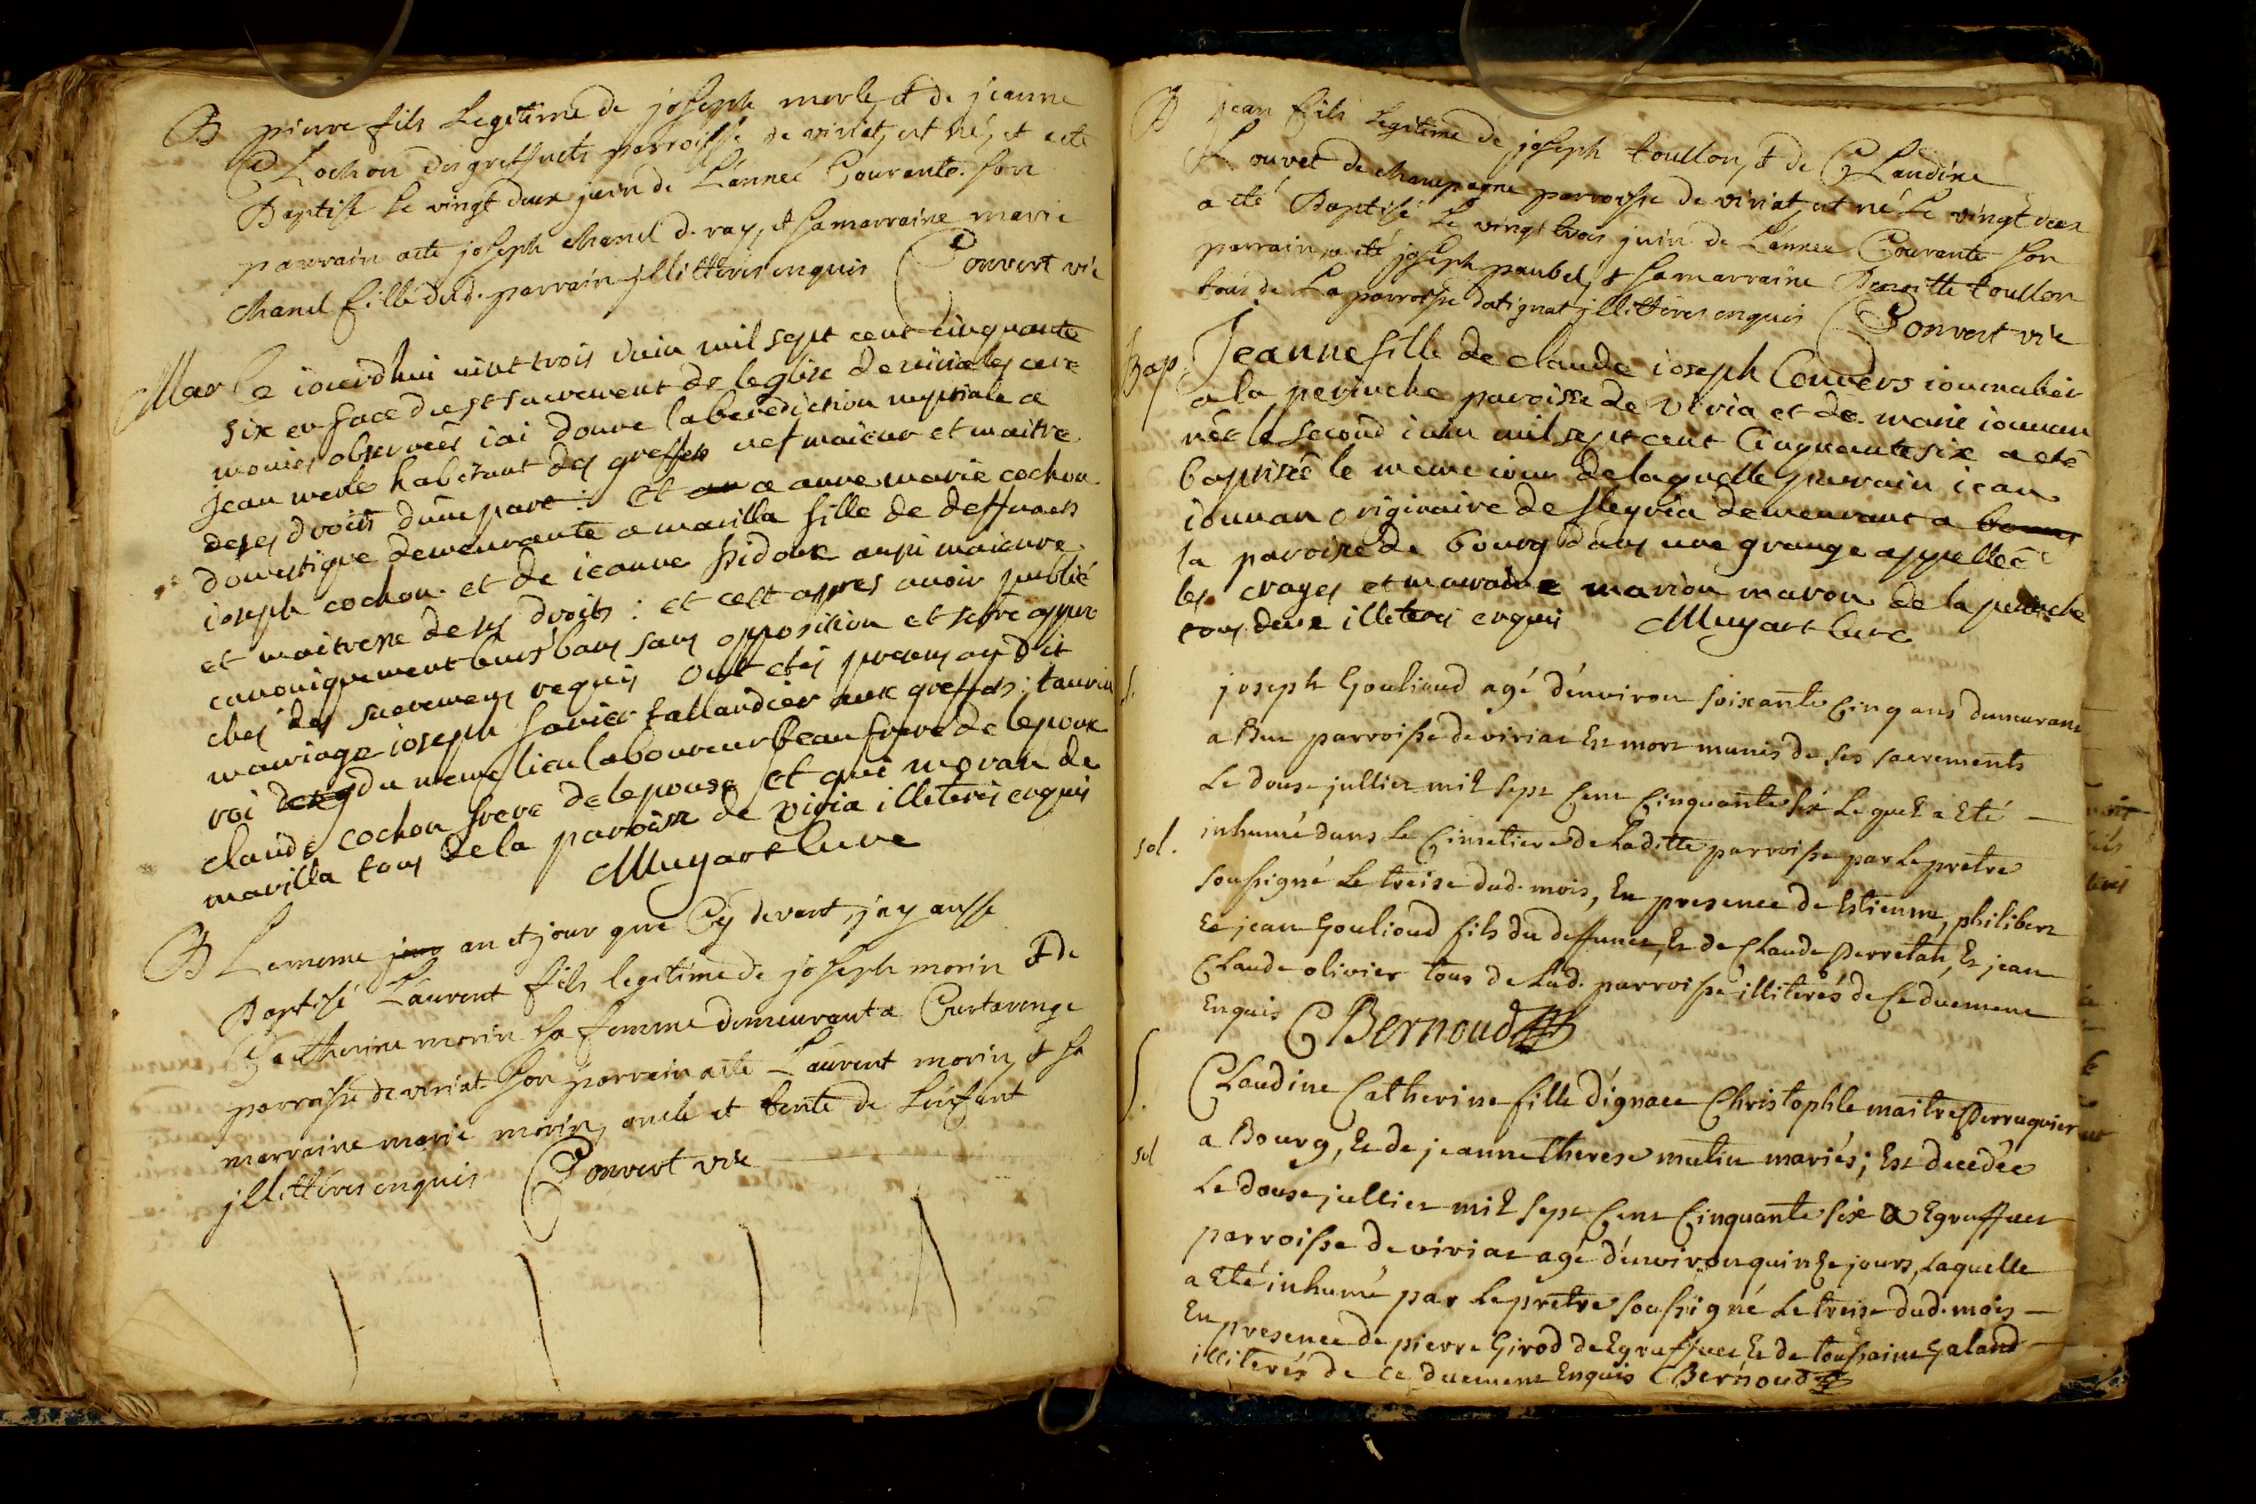 B pierre fils Legitime de joseph merle, & de jeanne
Cochon des greffets parroisse de viriat, est né, et a eté
Baptisé le vingt deux juin de L'année Courante. son
parrain a eté joseph chanel d. ray, & sa marraine marie
chanel fille dud. parrain jllitterés enquis Convert vic
Mar le iourdhui vint trois iuin mil sept cent cinquante
six en face du st sacrement de leglise de viria les cere
monies observees iai donne la benediction nuptiale a
jean merle habitant des greffets nef maieur et maitre
de ses droits dune part : et a anne marie cochon
domestique demeurante a marilla fille de deffunts
ioseph cochon et de ieanne pidoux aussi maieure
et maitresse de ses droits : et cest appres avoir publié
canoniquement leurs bans sans opposition et setre appro
ches des sacremens requis ont etes presens audit
mariage ioseph favier tallandier aux greffets : laurin
roi du meme lieu laboureur beau frere de lepoux
claude cochon frere de lepouse et gui moran de
marilla tous de la paroisse de viria illeteres enquis
Muyart curé
B Le meme an et jour que Cy devant, j'ay aussi
Baptisé Laurent fils legitime de joseph morin & de
Catherine morin sa femme demeurant a Curtaringe
parroisse de viriat son parrain a eté Laurent morin, & sa
marraine marie morin, oncle et tente de L'enfant
jllitterés enquis Convert vic
B jean fils Legitime de joseph toullon, & de Claudine
Louvet de champagne parroisse de viriat, est né Le vingt deux
a eté Baptisé Le vingt trois juin de L'année Courante son
parrain a eté joseph paubel, & sa marraine Benoitte toullon
tous de La parroisse datignat jllitterés enquis Convert vic
Bap. Jeanne fille de claude ioseph Convers iournalier
a la perinche paroisse de viria et de marie iounan
née le second iuin mil sept cent Cinquante six a eté
baptisée le meme iour de laquelle parrain iean
iounan originaire de fleyria demeurant a
la paroisse de bourg dans une grange appellée
les crayes et maraine marion maron de la perinche
tous deux illeteres enquis Muyart curé
S. joseph Goulioud agé d'environ soixante Cinq ans demeurant
a Buc parroisse de viriat Est mort munis de ses sacrements
Le douse jullier mil sept Cent Cinquante six Lequel a Eté
sol. inhumé dans Le Cimetiere de Laditte parroisse par Le pretre
soussigné Le treise dud. mois, En presence de Estienne, philibert
Et jean Gouliod fils du deffunct, Et de Claude Perretan, Et jean
Claude olivier tous de Lad. parroisse illiterés de Ce duement
Enquis C Bernoud
S. Claudine Catherine fille d'ignace Christophle maitre Perruquier
sol a Bourg, Et de jeanne therese mutin mariés ; Est decedée
Le douse jullier mil sept Cent Cinquante six a Egreffuet
parroisse de viriat agé d'environ quinze jours, Laquelle
a Eté inhumé par Le pretre soussigné Le treise dud. mois
En presence de pierre Girod de Egreffuet Et de toussaint Galand
illiterés de Ce duement Enquis C Bernoud